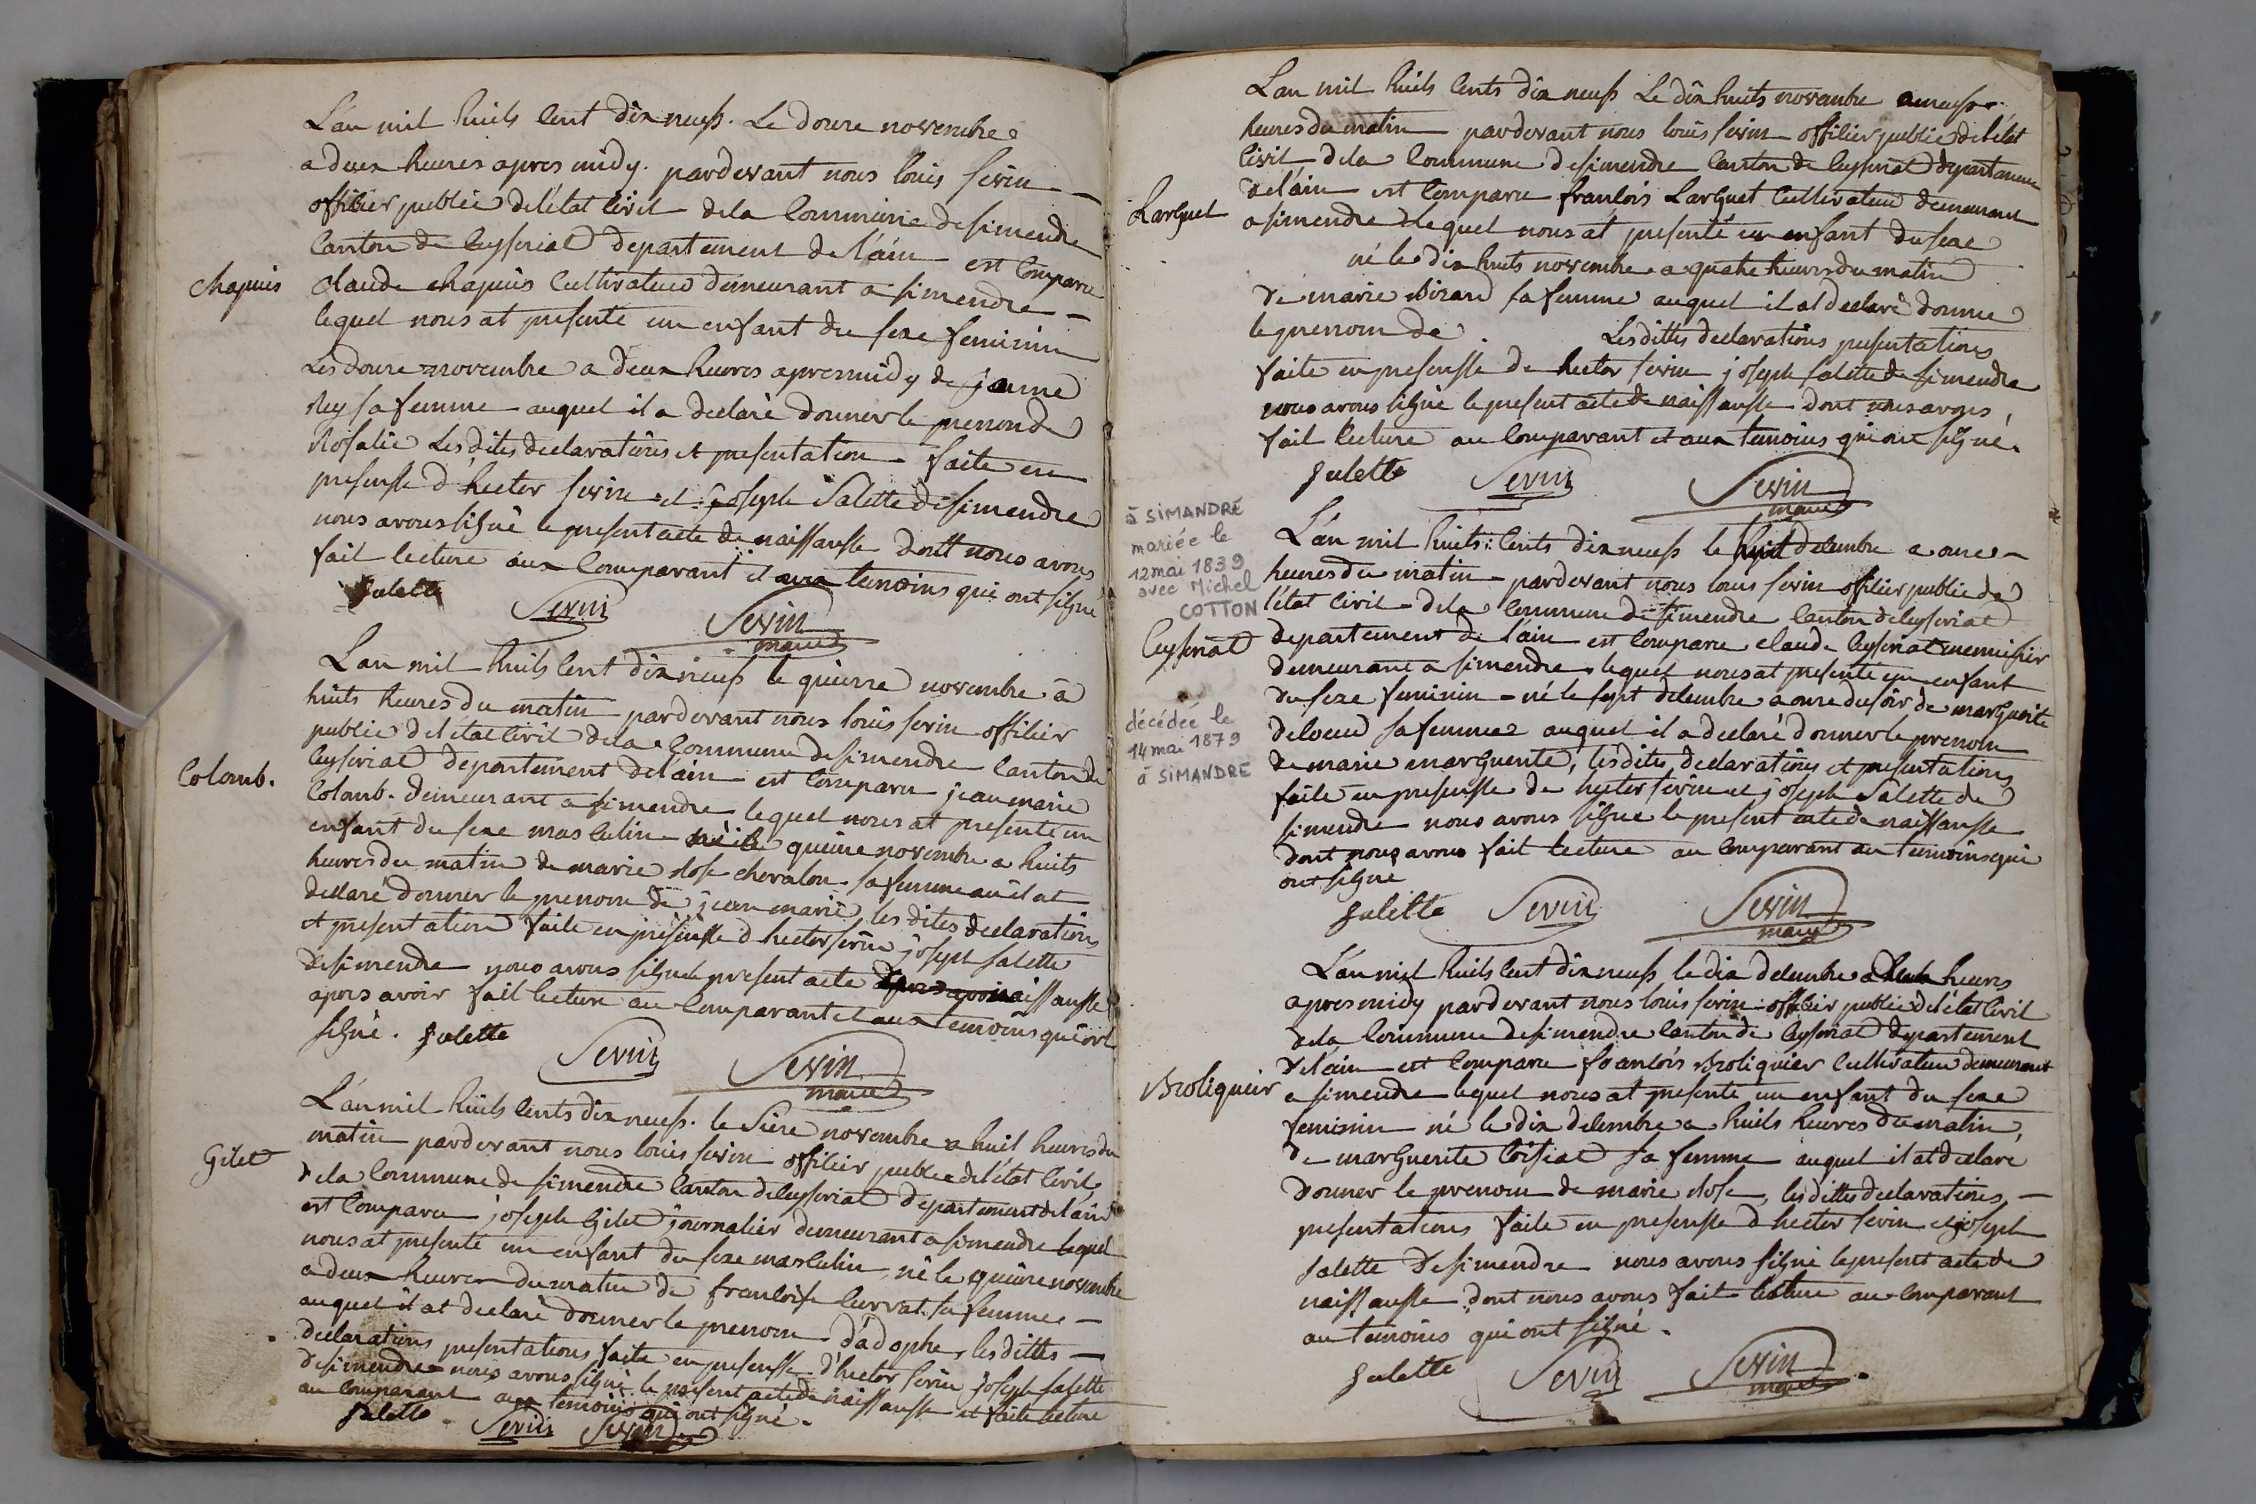 L'an mil huits cent dix neuf. Le douze novembre
a deux heures apres midy. pardevant nous louis sevin
officier publice del'état Civil dela Commune de simendre
Canton de Ceyseriat departement de l'ain est Comparu
chapuis
claude chapuis Cultivateur demeurant a simendre
lequel nous at presenté un enfant du sexe feminin
Les douze novembre a deux heures apresmidy de jeanne
Rey sa femme auquel il a declaré donner le prenon de
Rosalie Les dites declarations et presentation faite en
presensse d'hector sevin et joseph Salette de simendre
nous avons signé le present acte de naissansse dont nous avons
fait lecture aux Comparant et aux temoins qui ont signé
Salette Sevin Sevin
maire
L'an mil huits cent dix neuf le quinze novembre à
huits heures du matin pardevant nous louis sevin officier
public del état Civil dela Commune de simendre Canton de
Ceyseriat departement del'ain est Comparu jean marie
Colomb.
Colomb. demeurant a simendre lequel nous at presenté un
enfant du sexe masculin né le quinze novembre a huits
heures du matin de marie Rose chevalon sa femme au il at
declaré donner le prenom de jean marie, les dites declarations
et presentation faite en presensse d hector sevin joseph salette
de simendre nous avons signé le present acte naissansse
apres avoir fait lecture au Comparant et aux temoins qui ont
signé. Salette
Sevin Sevin
maire
L'an mil huits cents dix neuf. le size novembre a huit heures du
matin pardevant nous louis sevin officier publice del'état Civil
Gilet
dela Commune de simendre Canton de Ceyseriat departement del'ain
est Comparu joseph Gilet journalier demeurant a simendre lequel
nous at presenté un enfant du sexe masculin, né le quinze novembre
a deux heures du matin de francoise Curvat sa femme
auquel il at declaré donner le prenom d'adophe, les dittes
declarations presentations faite en presensse d'hector sevin joseph salette
de simendre nous avons signé le present acte de naissansse et faite lecture
au Comparant aux temoins qui ont signé.
Salette Sevin Sevin
L'an mil huits Cents dix neuf Le dix huits novembre a neuf
heures du matin pardevant nous louis sevin officier publice del'état
Civil dela Commune de simendre Canton de Ceyseriat departement
Larguet
del'ain est Comparu francois Larguet Cultivateur demeurant
a simendre lequel nous at presenté un enfant du sexe
né le dix huits novembre a quatre heures du matin
de marie Bizard sa femme auquel il at declaré donner
le prenom de Lesdittes declarations presentations
faite en presensse de hector sevin joseph salette de simendre
nous avons signé le present acte de naissansse dont nous avons
fait lecture au Comparant et aux temoins qui ont signé.
Salette Sevin Sevin
maire
à SIMANDRE
mariée le
12 mai 1839
avec Michel
COTTON
L'an mil huits Cents dix neuf le huit decembre a onze
heures du matin pardevant nous louis sevin officier public de
l'état Civil dela Commune de simendre Canton de Ceyseriat
Ceyseriat
departement de l'ain est Comparu claude Ceyseriat menuisier
demeurant a simendre lequel nous at presenté un enfant
du sexe feminin né le sept decembre a onze du soir de marguerite
décédée le
14 mai 1879
à SIMANDRE
sa femme auquel il a declaré donner le prenom
de marie marguerite, les dites declarations et presentations
faite en presensse de hector sevin et joseph Salette de
simendre nous avons signé le present acte de naissansse
dont nous avons fait lecture au Comparant au temoins qui
ont signé
Salette Sevin Sevin
maire
L'an mil huits cent dix neuf le dix decembre a deux heures
apres midy pardevant nous louis sevin officier public del'état Civil
dela Commune de simendre Canton de Ceyseriat departement
del'ain est Comparu francois Broliquier Cultivateur demeurant
Broliquier
a simendre lequel nous at presenté un enfant du sexe
feminin né le dix decembre a huits heures du matin,
de marguerite Loisiat sa femme auquel il at declare
donner le prenom de marie Rose, les dittes declarations,
presentations faite en presensse d hector sevin et joseph
salette de simendre nous avons signé le present acte de
naissansse dont nous avons fait lecture au Comparant
au temoins qui ont signé.
Salette Sevin Sevin
maire